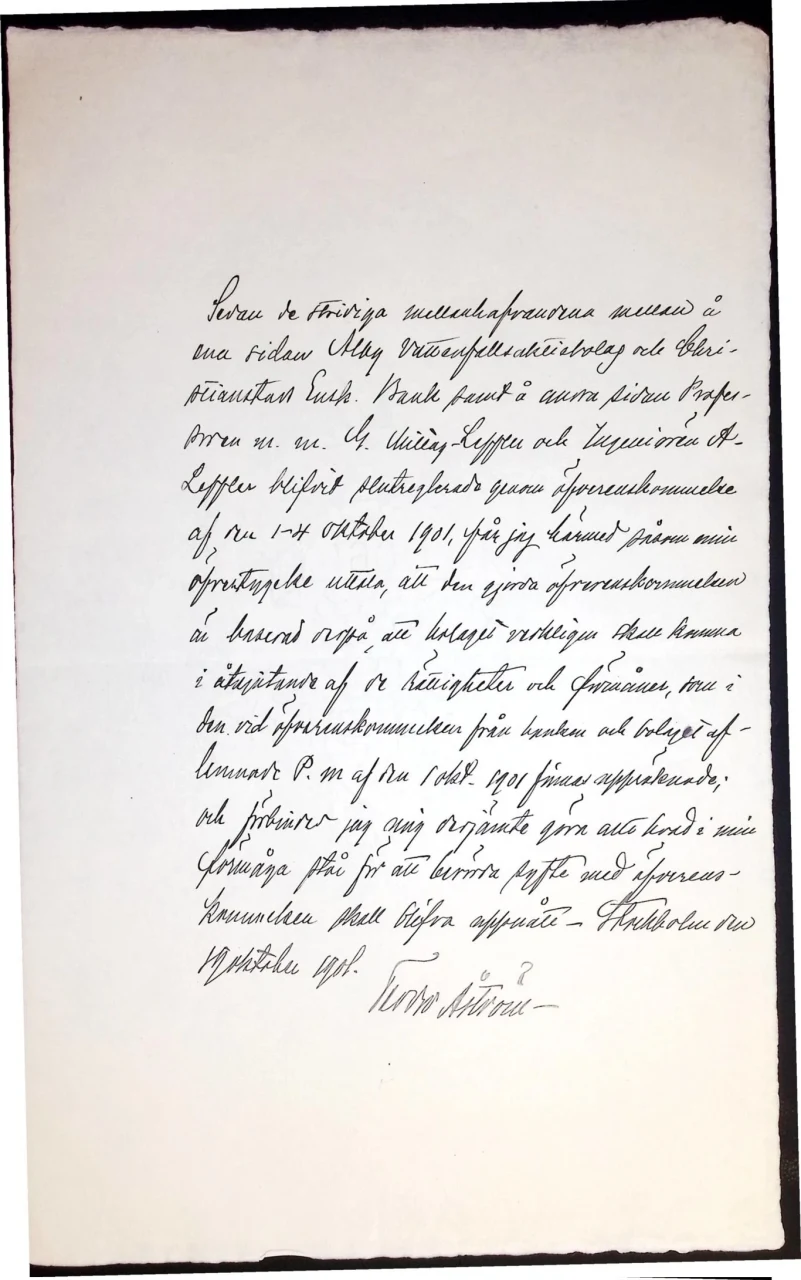 Sedan de stridiga mellanhafvandena mellan å
ena sidan Alby Vattenfallsaktiebolag och Chri-
stianstads Ensk. Bank samt å andra sidan Profes-
soren m. m. G. Mittag-Leffler och Ingeniören A.
Leffler blifvit slutreglerade genom öfverenskommelse
af den 1-4 oktober 1901, får jag härmed såsom min
öfvertygelse uttala, att den gjorda öfverenskommelsen
är baserad derpå, att bolaget verkligen skall komma
i åtnjutande af de rättigheter och förmåner, som i
den vid öfverenskommelsen från banken och bolaget af-
lemnade P. m af den 1 okt. 1901 finnas uppräknade;
och förbinder jag mig derjämte göra allt hvad i min
förmåga står för att berörda syfte med öfverens-
kommelsen skall blifva uppnådt – Stockholm den
19 oktober 1901.
Teodor Åström –